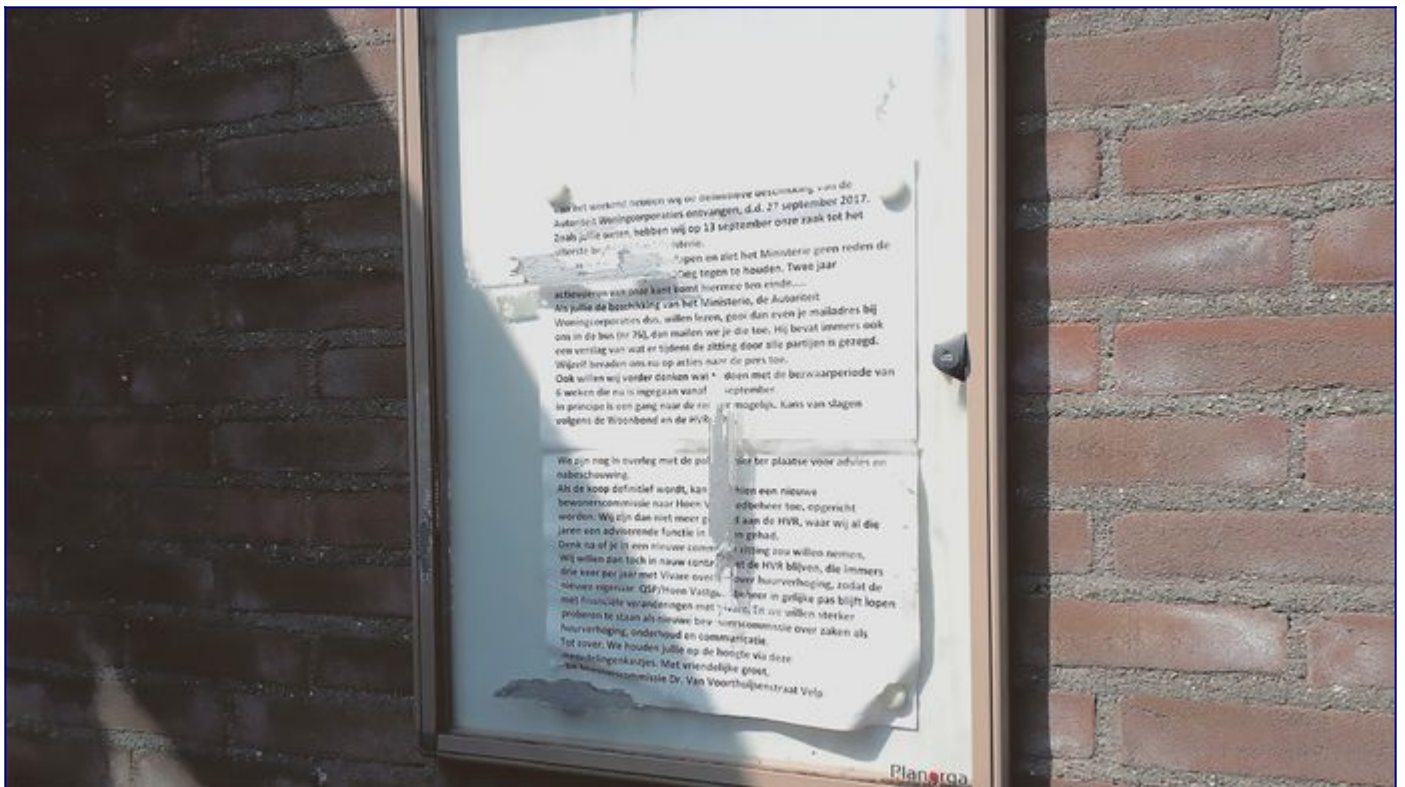 Van het weekend hebben wij de definitieve beschikking van de
Autoriteit Woningcorporaties ontvangen, d.d. 27 september 2017.
Zoals jullie weten hebben wij op 13 september onze zaak tot het
uiterste
open en ziet het Ministerie geen reden de
tegen te houden. Twee jaar
actievoeren van onze kant komt hiermee ten einde....
Als jullie de beschikking van het Ministerie, de Autoriteit
Woningcorporaties dus, willen lezen, gooi dan even je mailadres bij
ons in de bus (nr 76), dan mailen we je die toe. Hij bevat immers ook
een verslag van wat er tijdens de zitting door alle partijen is gezegd.
Wijzelf beraden ons nu op acties naar de pers toe.
Ook willen wij verder denken wat doen met de bezwaarperiode van
6 weken die nu is ingegaan vanaf september.
In principe is een gang naar de mogelijk. Kans van slagen
volgens de Woonbond en de HVR
We zijn nog in overleg met de hier ter plaatse voor advies en
nabeschouwing.
Als de koop definitief wordt, kan een nieuwe
bewonerscommissie naar Hoen toe, opgericht
worden. Wij zijn dan niet meer aan de HVR, waar wij al die
jaren een adviserende functie in gehad.
Denk na of je in een nieuwe zitting zou willen nemen.
Wij willen dan toch in nauw de HVR blijven, die immers
drie keer per jaar met Vivare over huurverhoging, zodat de
nieuwe eigenaar QSP/Hoen in gelijke pas blijft lopen
met financiële veranderingen met Vivare. En we willen sterker
proberen te staan als nieuwe bewonerscommissie over zaken als
huurverhoging, onderhoud en communicatie.
Tot zover. We houden jullie op de hoogte via deze
mededelingenkastjes. Met vriendelijke groet,
Bewonerscommissie Dr. Van Voorthuijsenstraat Velp
Planorga